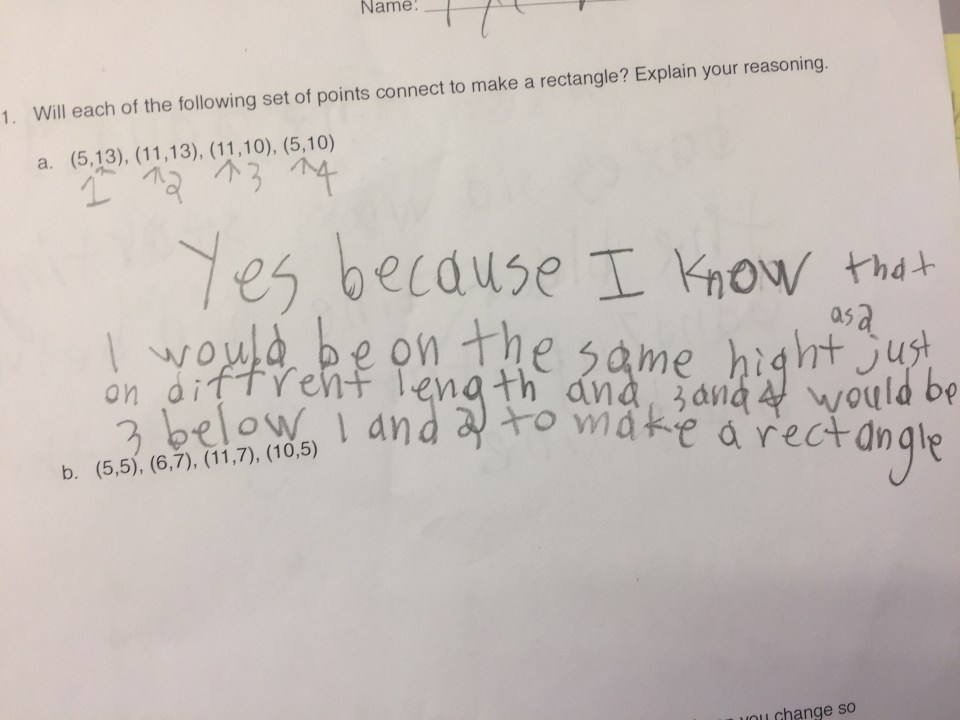 Name:
1. Will each of the following set of points connect to make a rectangle? Explain your reasoning.
a. (5,13), (11,13), (11,10), (5,10)
1 ↑2 ↑3 ↑4
Yes because I know that
as 2
1 would be on the same hight just
on diffrent length and 3 and 4 would be
3 below 1 and 2 to make a rectangle
b. (5,5), (6,7), (11,7), (10,5)
you change so